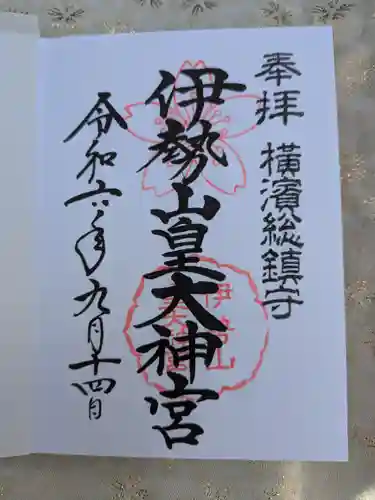 奉拝
横濱総鎮守
伊勢山皇大神宮
令和六年九月十四日